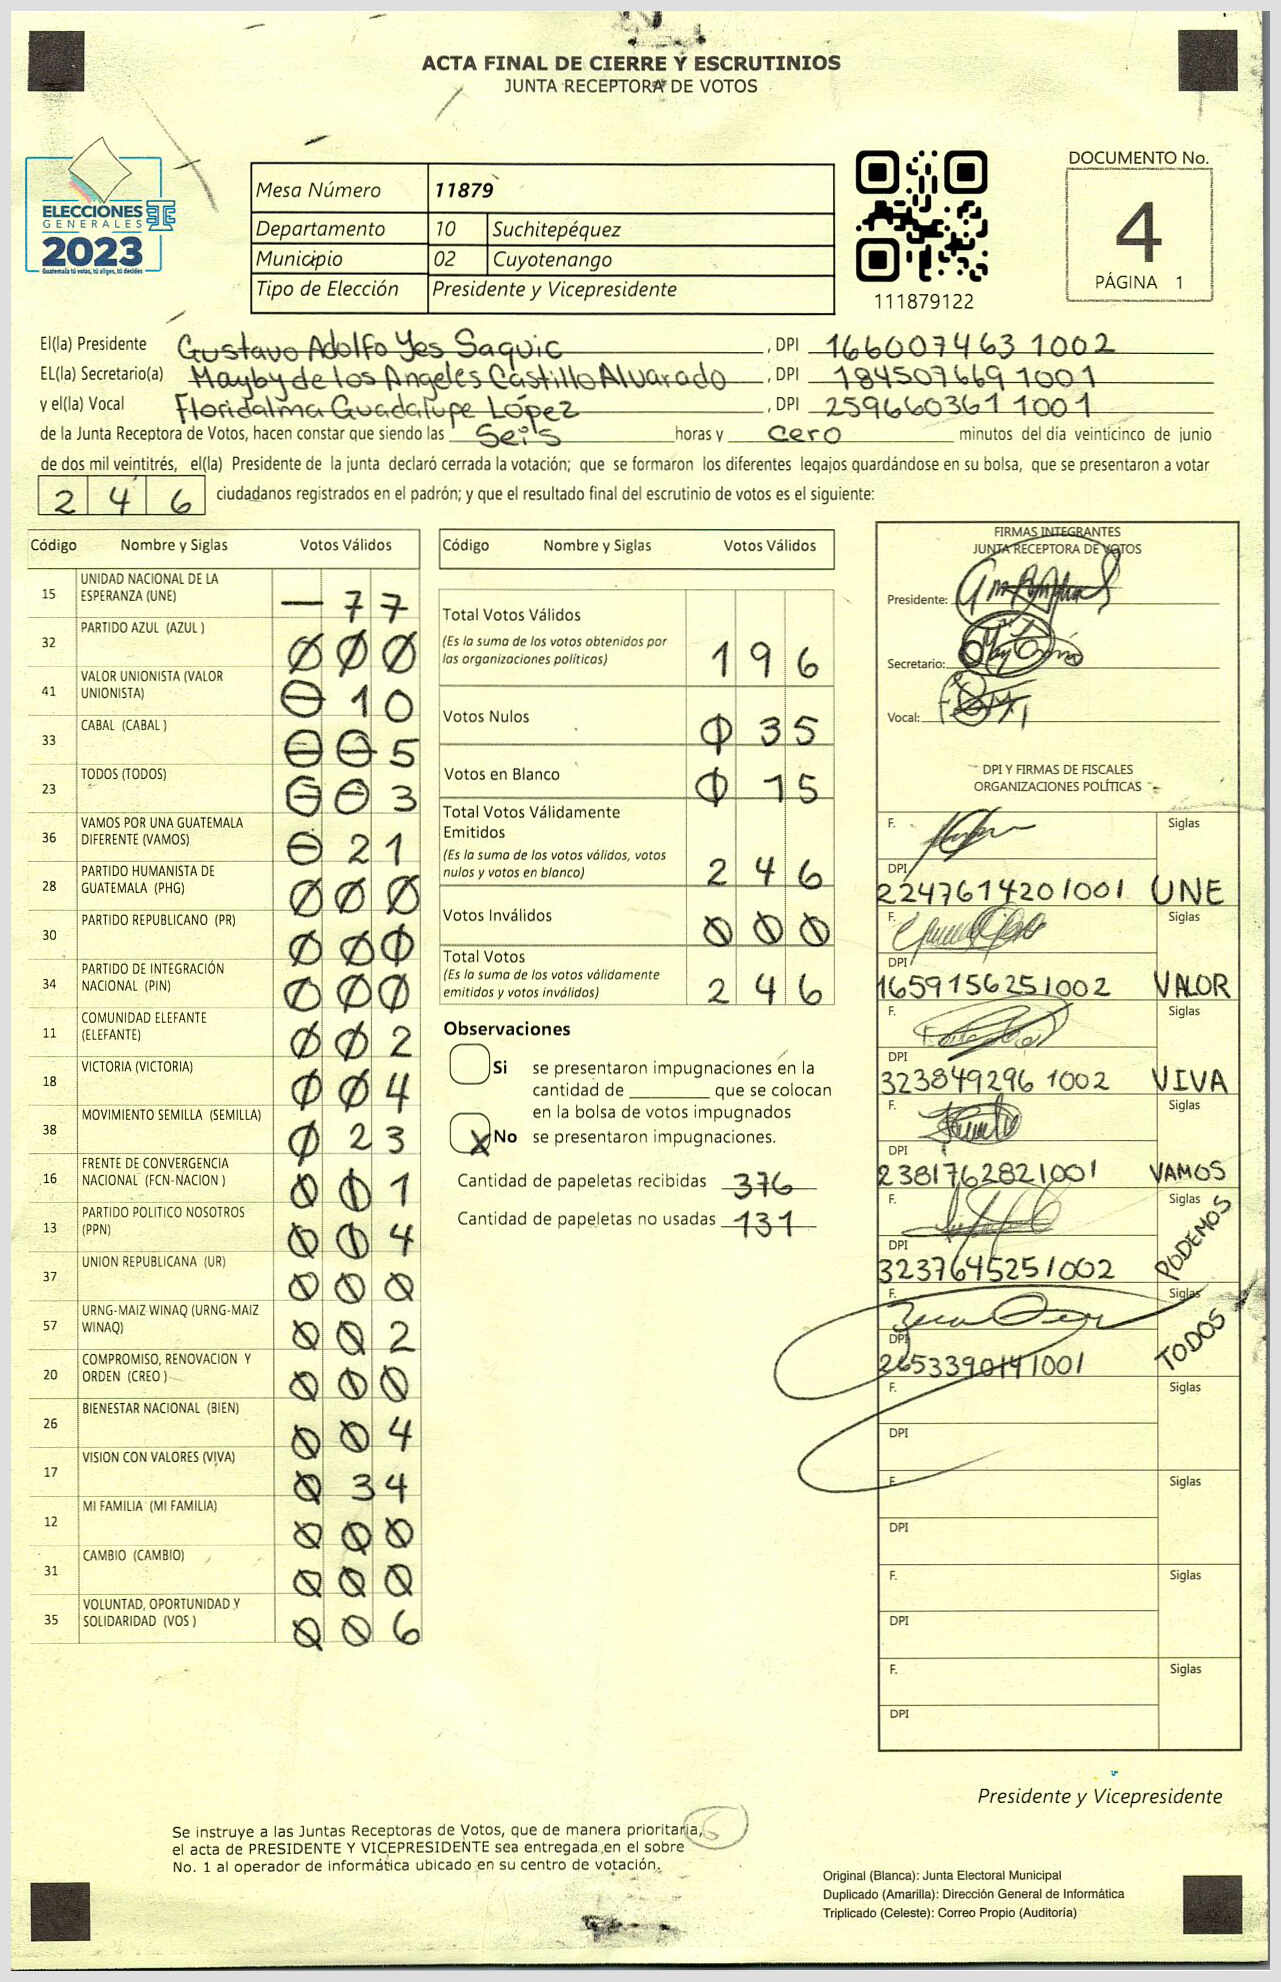 ACTA FINAL DE CIERRE Y ESCRUTINIOS
JUNTA RECEPTORA DE VOTOS
ELECCIONES
GENERALES
2023
Guatemala tú votas, tú eliges, tú decides
Mesa Número 11879
Departamento 10 Suchitepéquez
Municipio 02 Cuyotenango
Tipo de Elección Presidente y Vicepresidente
111879122
DOCUMENTO No.
4
PÁGINA 1
El(la) Presidente Gustavo Adolfo Yes Saquic, DPI 1660074631002
EL(la) Secretario(a) Mayby de los Angeles Castillo Alvarado, DPI 1845076691001
y el(la) Vocal Floridalma Guadalupe López, DPI 2596603611001
de la Junta Receptora de Votos, hacen constar que siendo las Seis horas y cero minutos del día veinticinco de junio
de dos mil veintitrés, el(la) Presidente de la junta declaró cerrada la votación; que se formaron los diferentes legajos guardándose en su bolsa, que se presentaron a votar
246 ciudadanos registrados en el padrón; y que el resultado final del escrutinio de votos es el siguiente:
Código Nombre y Siglas Votos Válidos
15 UNIDAD NACIONAL DE LA
ESPERANZA (UNE) — 7 7
32 PARTIDO AZUL (AZUL ) 0 0 0
41 VALOR UNIONISTA (VALOR
UNIONISTA) 0 1 0
33 CABAL (CABAL ) 0 0 5
23 TODOS (TODOS) 0 0 3
36 VAMOS POR UNA GUATEMALA
DIFERENTE (VAMOS) 0 2 1
28 PARTIDO HUMANISTA DE
GUATEMALA (PHG) 0 0 0
30 PARTIDO REPUBLICANO (PR) 0 0 0
34 PARTIDO DE INTEGRACIÓN
NACIONAL (PIN) 0 0 0
11 COMUNIDAD ELEFANTE
(ELEFANTE) 0 0 2
18 VICTORIA (VICTORIA) 0 0 4
38 MOVIMIENTO SEMILLA (SEMILLA) 0 2 3
16 FRENTE DE CONVERGENCIA
NACIONAL (FCN-NACION ) 0 0 1
13 PARTIDO POLITICO NOSOTROS
(PPN) 0 0 4
37 UNION REPUBLICANA (UR) 0 0 0
57 URNG-MAIZ WINAQ (URNG-MAIZ
WINAQ) 0 0 2
20 COMPROMISO, RENOVACION Y
ORDEN (CREO ) 0 0 0
26 BIENESTAR NACIONAL (BIEN) 0 0 4
17 VISION CON VALORES (VIVA) 0 3 4
12 MI FAMILIA (MI FAMILIA) 0 0 0
31 CAMBIO (CAMBIO) 0 0 0
35 VOLUNTAD, OPORTUNIDAD Y
SOLIDARIDAD (VOS ) 0 0 6
Código Nombre y Siglas Votos Válidos
Total Votos Válidos
(Es la suma de los votos obtenidos por
las organizaciones políticas) 1 9 6
Votos Nulos 0 3 5
Votos en Blanco 0 1 5
Total Votos Válidamente
Emitidos
(Es la suma de los votos válidos, votos
nulos y votos en blanco) 2 4 6
Votos Inválidos 0 0 0
Total Votos
(Es la suma de los votos válidamente
emitidos y votos inválidos) 2 4 6
Observaciones
Si se presentaron impugnaciones en la
cantidad de ________ que se colocan
en la bolsa de votos impugnados
X No se presentaron impugnaciones.
Cantidad de papeletas recibidas 376
Cantidad de papeletas no usadas 131
FIRMAS INTEGRANTES
JUNTA RECEPTORA DE VOTOS
Presidente:
Secretario:
Vocal:
DPI Y FIRMAS DE FISCALES
ORGANIZACIONES POLÍTICAS
F. Siglas
DPI
2247614201001 UNE
F. Siglas
DPI
1659156251002 VALOR
F. Siglas
DPI
3238492961002 VIVA
F. Siglas
DPI
2381762821001 VAMOS
F. Siglas
DPI
3237645251002 PODEMOS
F. Siglas
DPI
2653390141001 TODOS
F. Siglas
DPI
F. Siglas
DPI
F. Siglas
DPI
F. Siglas
DPI
Presidente y Vicepresidente
6
Se instruye a las Juntas Receptoras de Votos, que de manera prioritaria,
el acta de PRESIDENTE Y VICEPRESIDENTE sea entregada en el sobre
No. 1 al operador de informática ubicado en su centro de votación.
Original (Blanca): Junta Electoral Municipal
Duplicado (Amarilla): Dirección General de Informática
Triplicado (Celeste): Correo Propio (Auditoría)